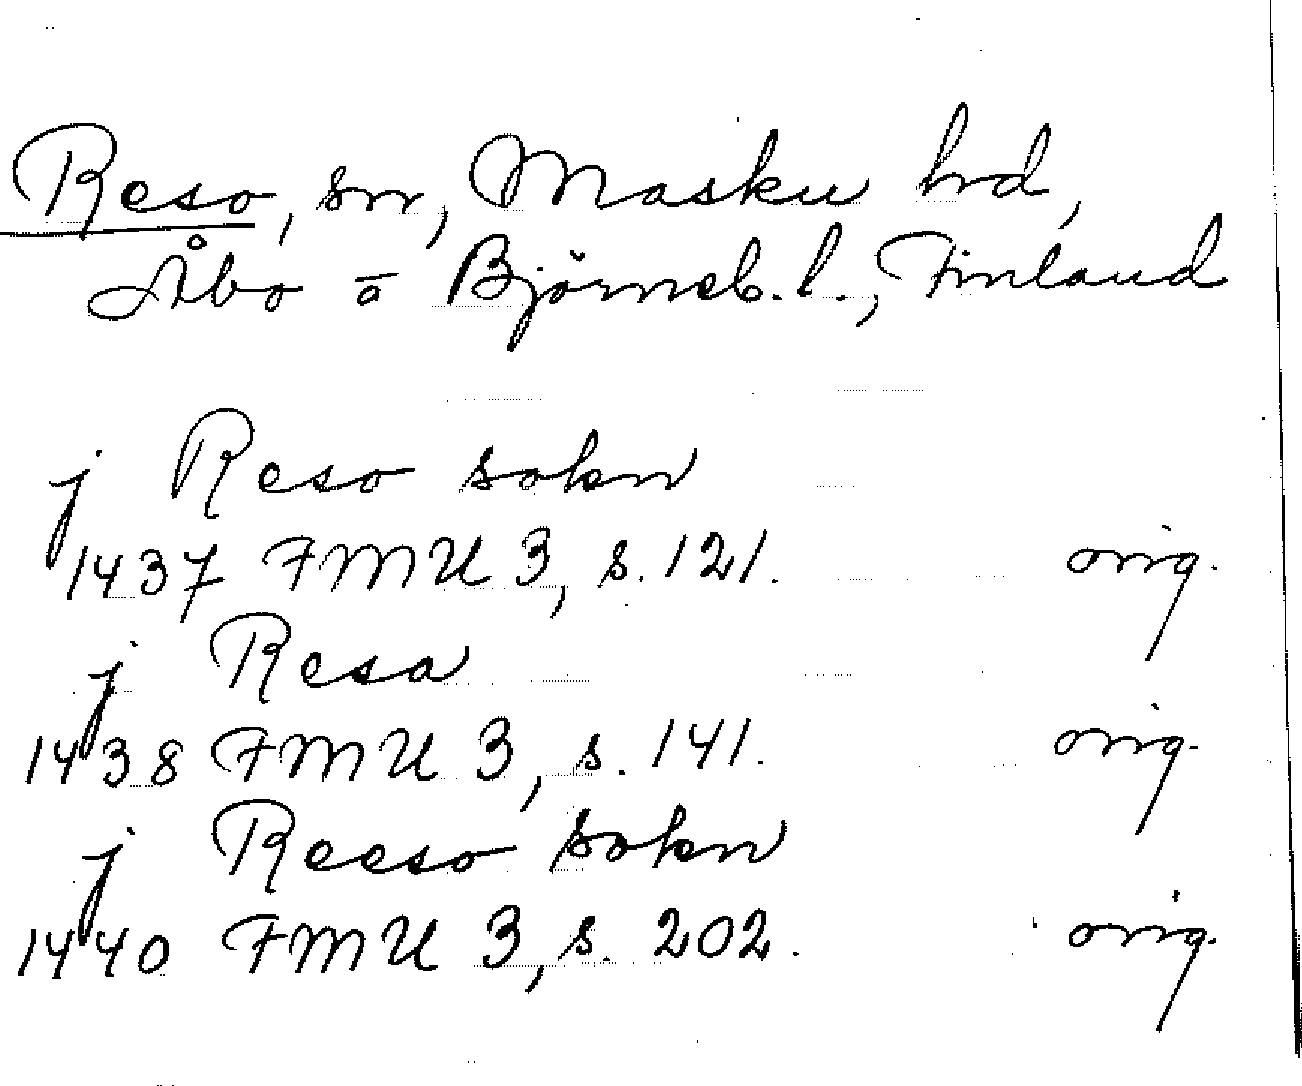 Reso, sn, Masku hrd,
Åbo o Björneb. l., Finland
j Reso sokn
1437 FMU 3, s. 121. orig.
j Resa
1438 FMU 3, s. 141. orig.
j Reeso sokn
1440 FMU 3, s. 202. orig.